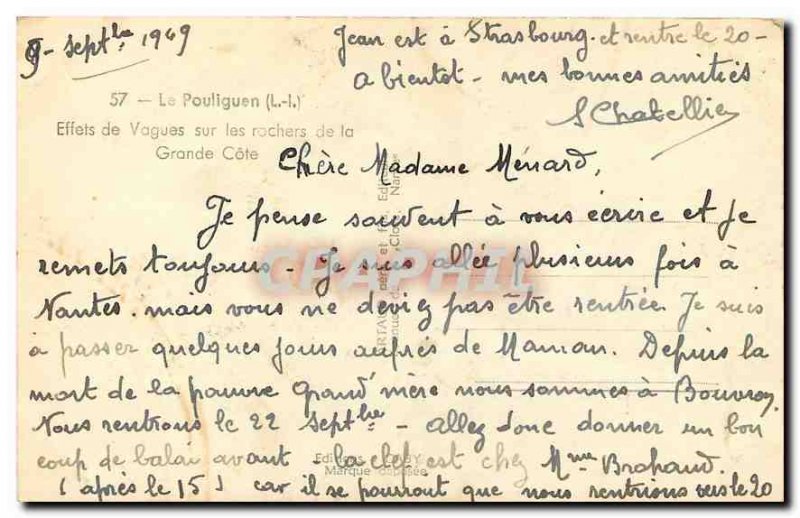 9 - septbre 1949
57 — Le Pouliguen (L.-I.)
Effets de Vagues sur les rochers de la
Grande Côte
Chère Madame Ménard,
Je pense souvent à vous écrire et je
remets toujours - Je suis allée plusieurs fois à
Nantes, mais vous ne deviez pas être rentrée. Je suis
à passer quelques jours auprès de Maman. Depuis la
mort de la pauvre grand'mère nous sommes à Bouvron.
Nous rentrons le 22 septbre - allez donc donner un bon
coup de balai avant - la clef est chez Mme Brohand.
(après le 15) car il se pourrait que nous rentrions vers le 20
Jean est à Strasbourg - et rentre le 20 -
a bientot - mes bonnes amitiés
S Chatellier
CPAPHIL
Marque déposée